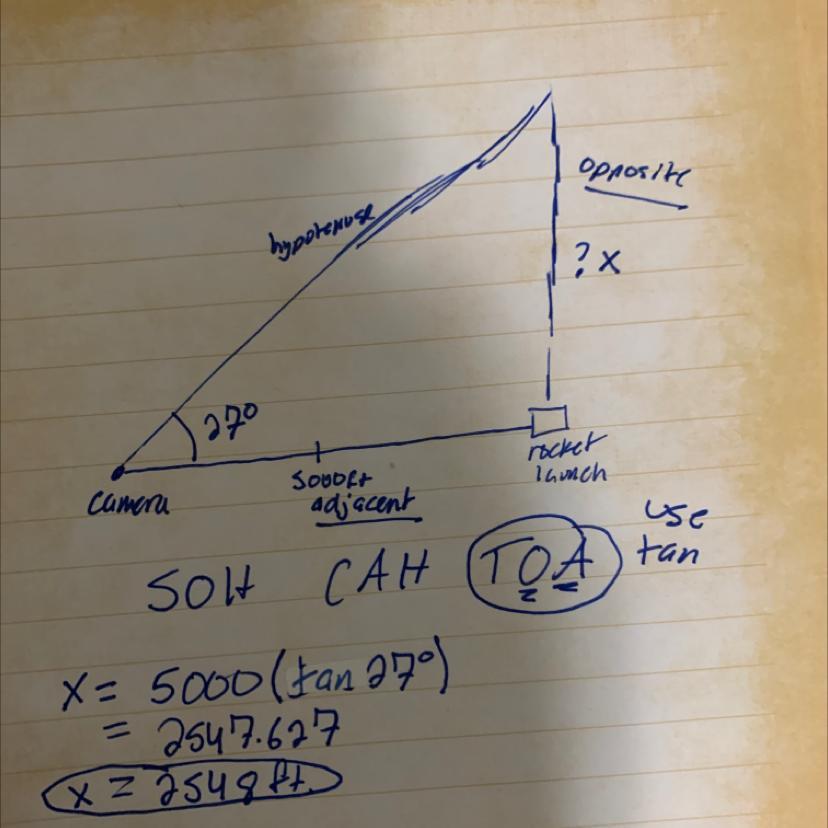 opposite
hypotenuse
? x
27°
rocket
launch
5000ft
adjacent
Camera
use
tan
SOH CAH TOA
x = 5000 (tan 27°)
= 2547.627
x = 2548 ft.